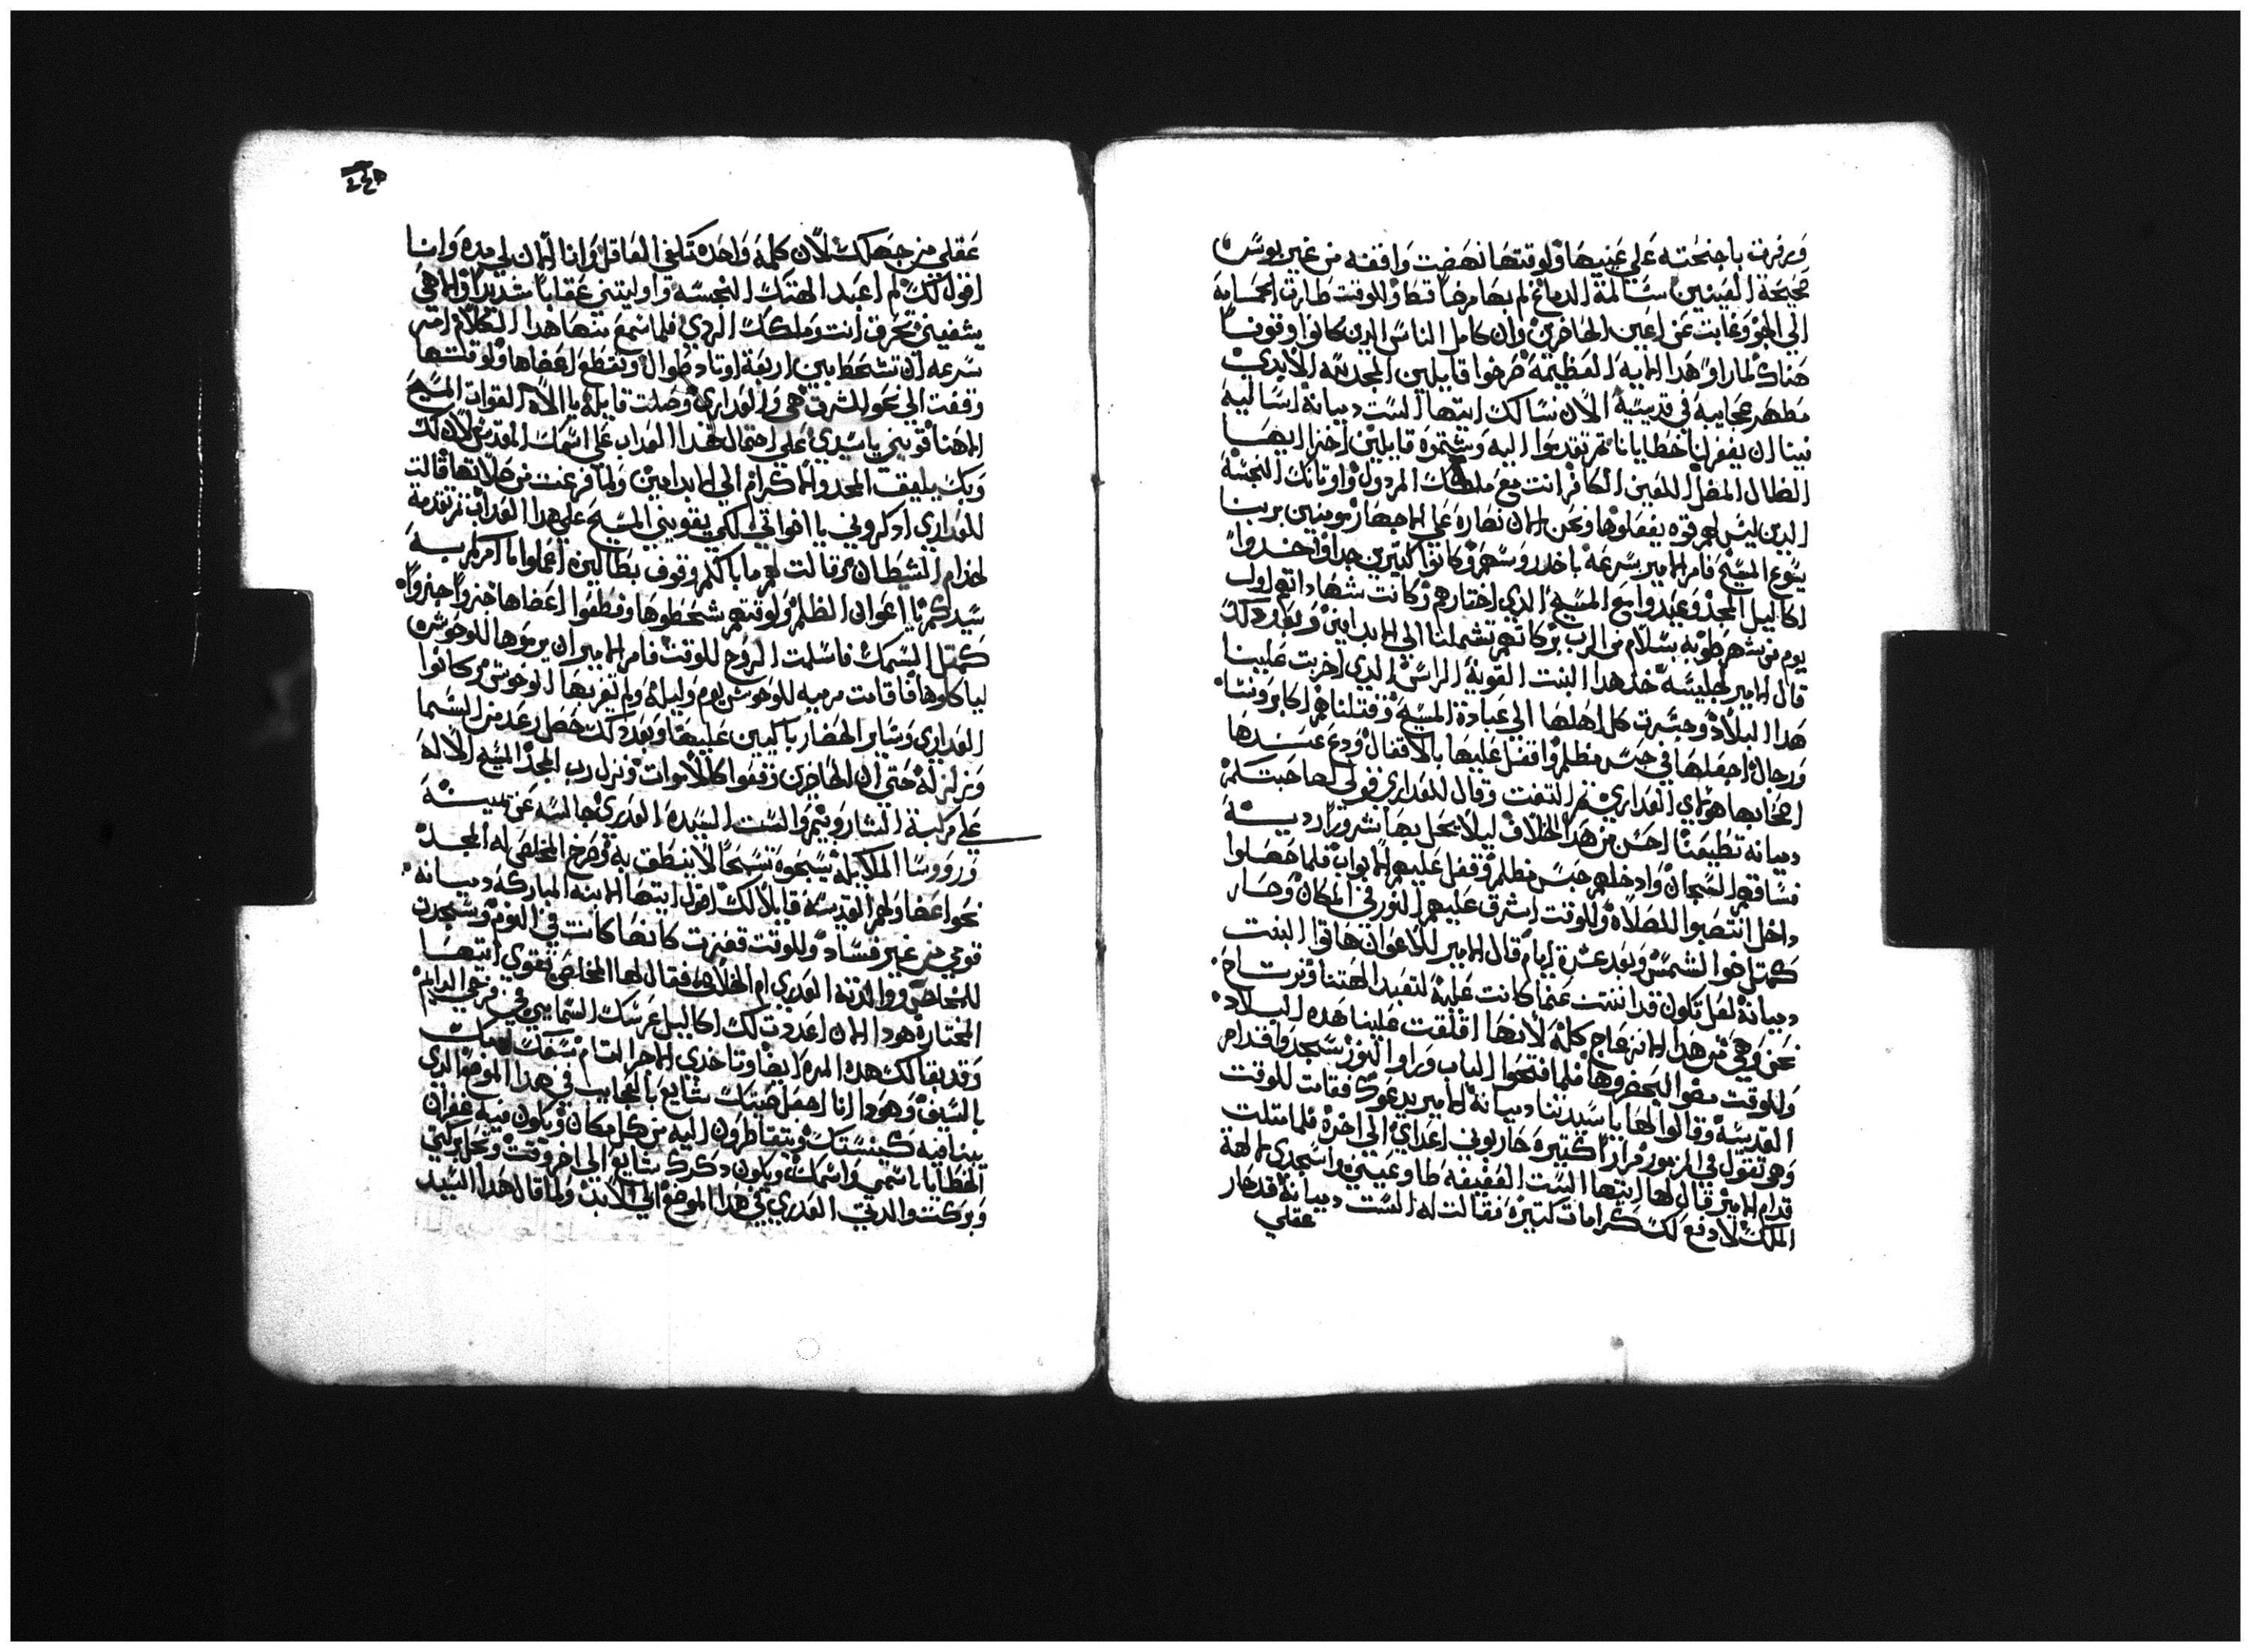 ورفرفت باجنحته علي عنيها ولوقتها نهضت واقفه من غير بوس
صحيحة العينين سالمة الدماغ لم بها مرضا قط وللوقت طارت الحمامة
الي الجو وغابت عن اعين الحاضرين وان كامل الناس الدين كانوا وقوفا
هناك لما راو هدا الايه العظيمة صرخوا قايلين المجد لله الابدي
مظهر عجايبه في قديسيه الان نسالك ايتها الست دميانة اسالي
فينا ان يغفر لنا خطايانا تم تقدموا اليه وشتموه قايلين اخزا ايها
الظال المضل اللعين الكافر انت مع ملكك المردول واوتانك النجسة
الدين ليس لهم قوه يفعلوها ونحن الان نصاره علي الاجهار مومنين بربنا
يسوع المسيح فامر الامير بسرعة باخد روسهم وكانوا كتيرين جدا واخدوا
اكاليل المجد وعيدوا مع المسيح الدي اختارهم وكانت شهاداتهم اول
يوم من شهر طوبه بسلام من الرب بركاتهم تشملنا الي الابد امين وبعد دلك
قال الامير لجليسه خد هدا البنت القوية الراس الدي اخربت علينا
هدا البلاد وجسرت كل اهلها الي عبادة المسيح وقتلناهم اكابر ونسا
ورجال اجعلها في حبس مظلم واقفل عليها بالاقفال ودع عندها
اصحابها هولاي العداري تم التفت وقال للعداري قولي لصاحبتكم
دميانه تطيعنا احسن من هدا الخلاف ليلا يحل بها شرورا رديه
فساقهم السجان وادخلهم حبس مظلم وقفل عليهم الابواب فلما حصلوا
داخل انتصبوا للصلاه وللوقت اشرق عليهم النور في المكان وصار
كمتل ضوا الشمس وبعد عشرة ايام قال الامير للاعوان هاتوا البنت
دميانة لعل تكون قد انتنت عنما كانت عليه لتعبد الهتنا ونرتاح
نحن وهي من هدا الانزعاج كله لانها اقلقت علينا هده البلاد
وللوقت مضوا ليحضروها فلما فتحوا الباب وراوا النور سجدوا قدام
القديسة وقالوا لها يا سيدتنا دميانة الامير يدعوك فقامت للوقت
وهي تقول في المزمور مرارا كتيرة حاربوني اعداي الي اخره فلما متلت
قدام الامير قال لها ايتها الست العفيفه طاوعيني واسجدي لالهة
الملك لادفع لك كرامات كتيرة فقالت له الست دميانة قد طار
عقلي
عقلي من جهلك لان كلمة واحده تكفي العاقل وانا الان لي مده وانا
اقول لك لم اعبد الهتك النجسه واوليتني عقابا شديدا والاهي
يشفيني ويحرق انت وملكك الردي فلما سمع منها هدا الكلام امر
بسرعه ان تشحط بين اربعة اوتاد طوال وتقطع اعضاها ولوقتها
وقفت الي نحو الشرق هي والعداري وصلت قايلة يا الاه القوات المسيح
الاهنا قويني يا سيدي علي احتمال هدا العداب علي اسمك القدوس لان لك
وبك يليق المجد والاكرام الي الابد امين ولما فرغت من صلاتها قالت
للعداري ادكروني يا اخواتي لكي يقويني المسيح علي هدا العداب تم تقدمة
لخدام الشيطان وقالت لهم ما بالكم وقوف بطالين اعملوا ما امركم به
سيدكم يا اعوان الظلم ولوقتهم شحطوها وقطعوا اعضاها جزوا جزوا
كمتل السمك فاسلمت الروح للوقت فامر الامير ان يرموها للوحوش
لياكلوها فاقامت مرميه للوحوش يوم وليلة ولم تقربها الوحوش وكانوا
العداري وساير الحضار باكيين عليها وبعد دلك حصل رعد من السما
وزلزله حتي ان الحاضرين وقفوا كالاموات ونزل رب المجد المسيح الاله
علي مركبة الشاروبيم والست السيده العدري جالسه عن يمينه
وروسا الملايكة يسبحوه تسبحا لا ينطق به وصرخ المخلص له المجد
نحو اعضاو لحم القديسة قايلا لك اقول ايتها الابنه المباركه دميانه
قومي من غير فساد وللوقت قفزت كانها كانت في النوم وسجدت
للمخلص ووالدته العدري ام الخلاص فقال لها المخلص تقوي ايتها
المختارة هودا الان اعددت لك اكاليل عرسك السمايي في فرحي الدايم
وقد بقا لك هده المره ايضا وتاخدي الاجر التام بسفك دمك
بالسيف وهودا انا اجعل صيتك شايع بالعجايب في هدا الموضع الدي
يبنا فيه كنيستك ويتقاطرون اليه من كل مكان ويكون فيه غفران
الخطايا باسمي واسمك ويكون دكرك شايع الي اخر وقت وتحل بركتي
وبركت والدتي العدري في هدا الموضع الي الابد ولما قال هدا السيد